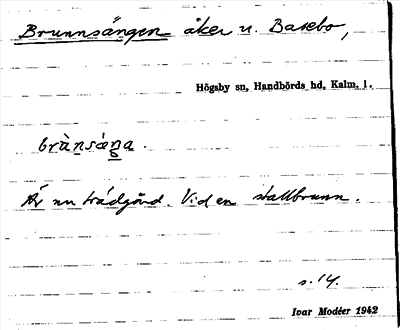 Brunnsängen åker u. Basebo,
Högsby sn, Handbörds hd, Kalm. l.
brànsáŋa.
Är nu trädgård. Vid en stallbrunn.
s. 14.
Ivar Modéer 1942